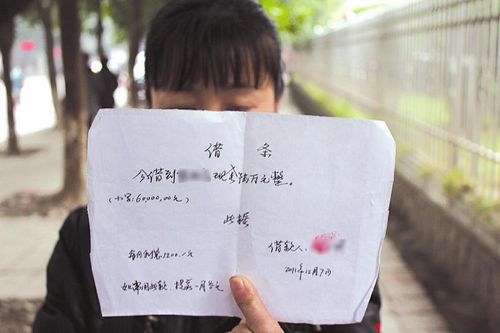 借 条
今借到 现金陆万元整。
(小写:60,000,00元)
此据
借款人:
每月利息1200.-元
2011年12月7日
如需用此款,提前一月告之